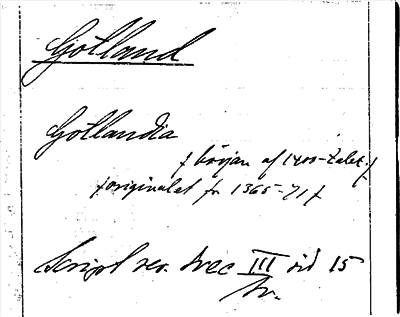 Gotland
Gotlandia
/början af 1400-talet/
/originalet fr 1365-71/
Script rer. svec III sid 15